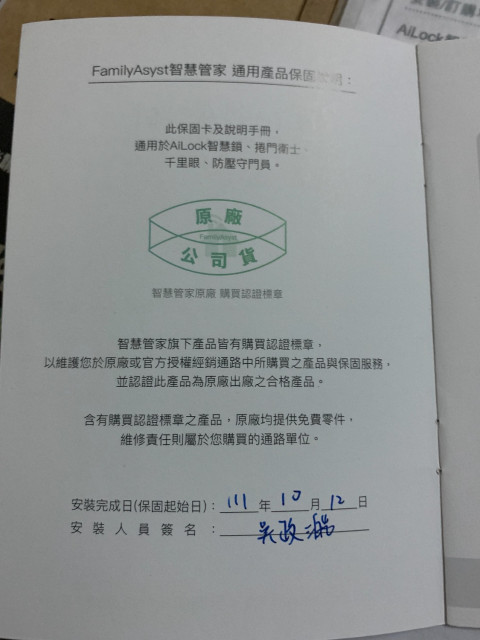 安裝/訂購
AiLock智
FamilyAsyst智慧管家 通用產品保固說明：
此保固卡及說明手冊，
適用於AiLock智慧鎖、捲門衛士、
千里眼、防壓守門員。
原廠
FamilyAsyst
公司貨
智慧管家原廠 購買認證標章
智慧管家旗下產品皆有購買認證標章，
以維護您於原廠或官方授權經銷通路中所購買之產品與保固服務，
並認證此產品為原廠出廠之合格產品。
含有購買認證標章之產品，原廠均提供免費零件，
維修責任則屬於您購買的通路單位。
安裝完成日(保固起始日)：111年10月12日
安裝人員簽名：吳政